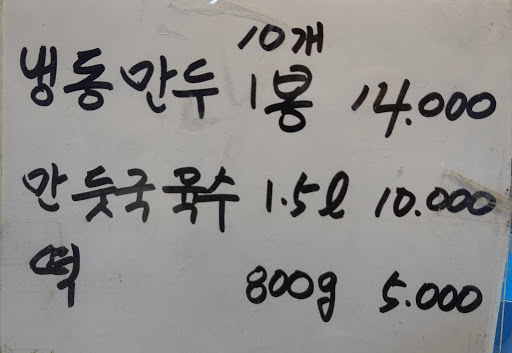 10개
냉동만두 1봉 14.000
만둣국육수 1.5l 10.000
떡 800g 5.000